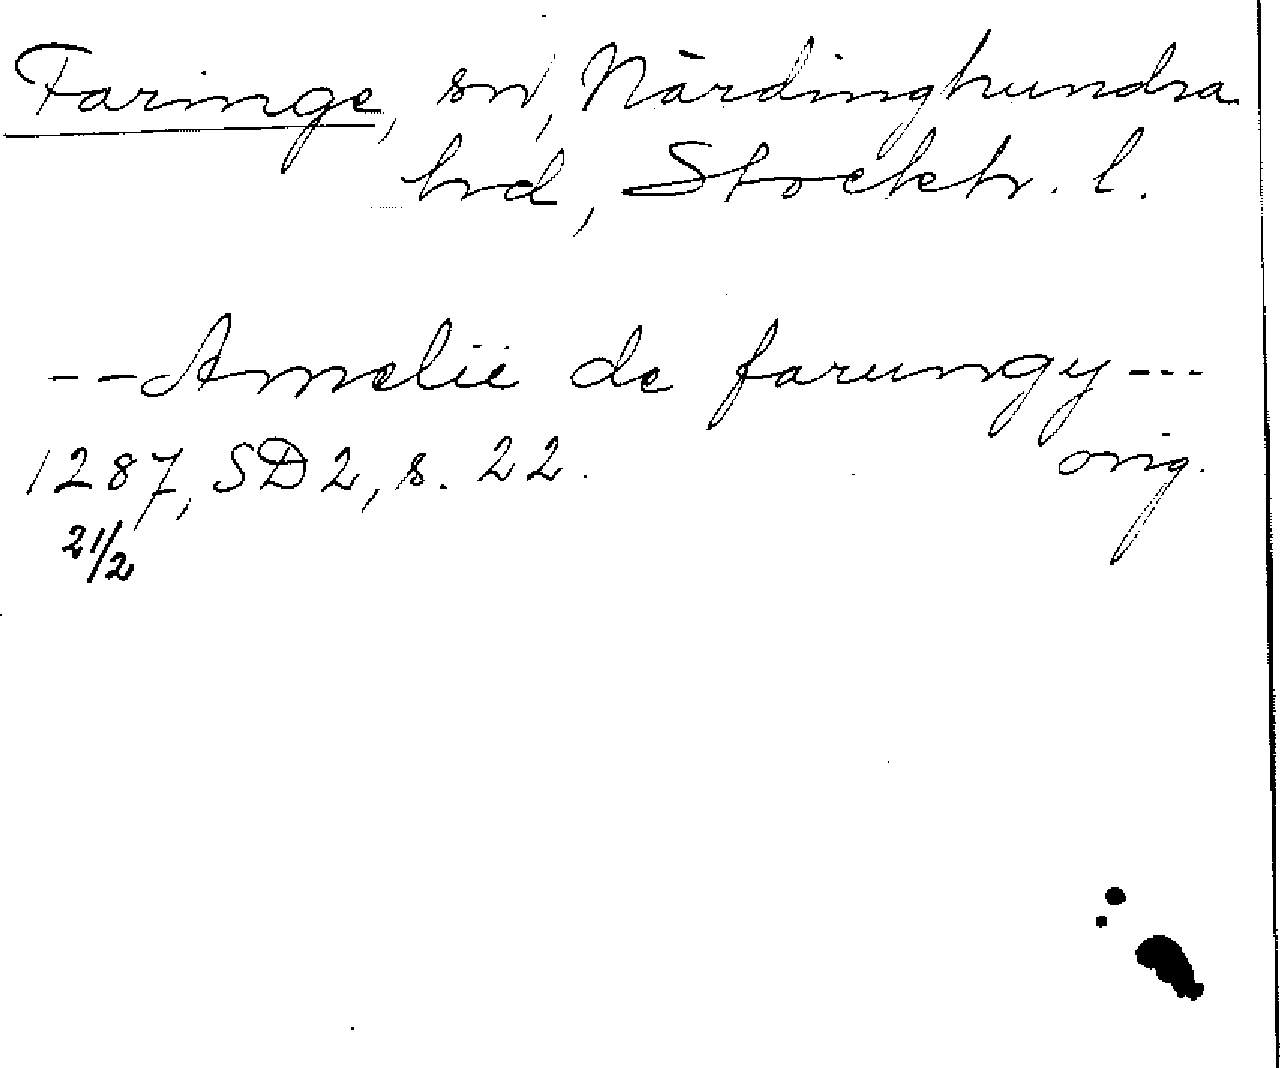 Faringe, sn, Närdinghundra
hrd, Stockh. l.
--Amelie de farungy---
1287, SD2, s. 22. orig.
21/2